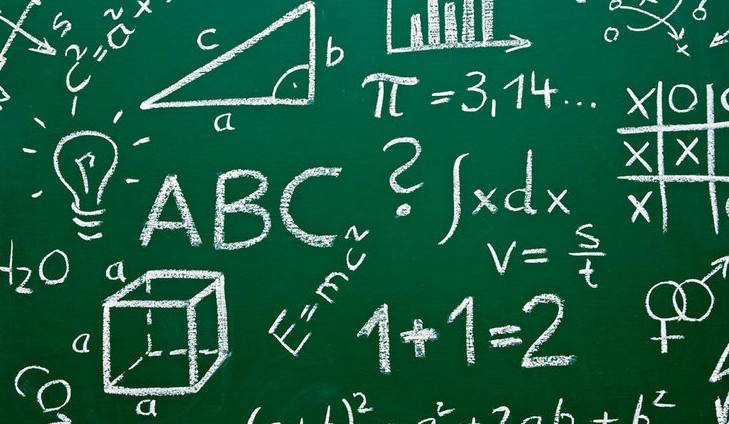 c² = a²
c
b
a
π = 3,14...
X O
X X
X
?
∫ x dx
ABC
v = s/t
H₂O
a
a
a
E = mc²
1+1=2
CO
(a+b)² = a² + 2ab + b²